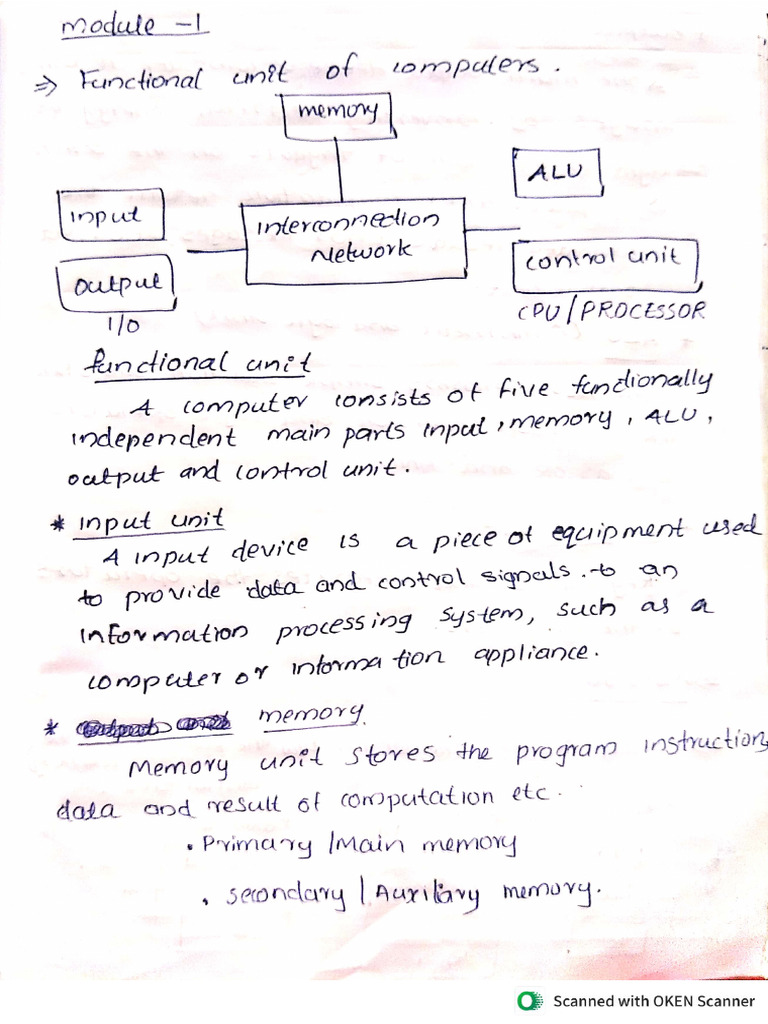 module -1
⇒ Functional unit of computers.
memory
ALU
input
interconnection
Network
control unit
output
I/O
CPU/PROCESSOR
functional unit
A computer consists of five functionally
independent main parts input, memory, ALU,
output and control unit.
* input unit
A input device is a piece of equipment used
to provide data and control signals. to an
information processing system, such as a
computer or information appliance.
* memory.
Memory unit stores the program instruction,
data and result of computation etc.
• Primary /Main memory
• secondary / Auxiliary memory.
Scanned with OKEN Scanner